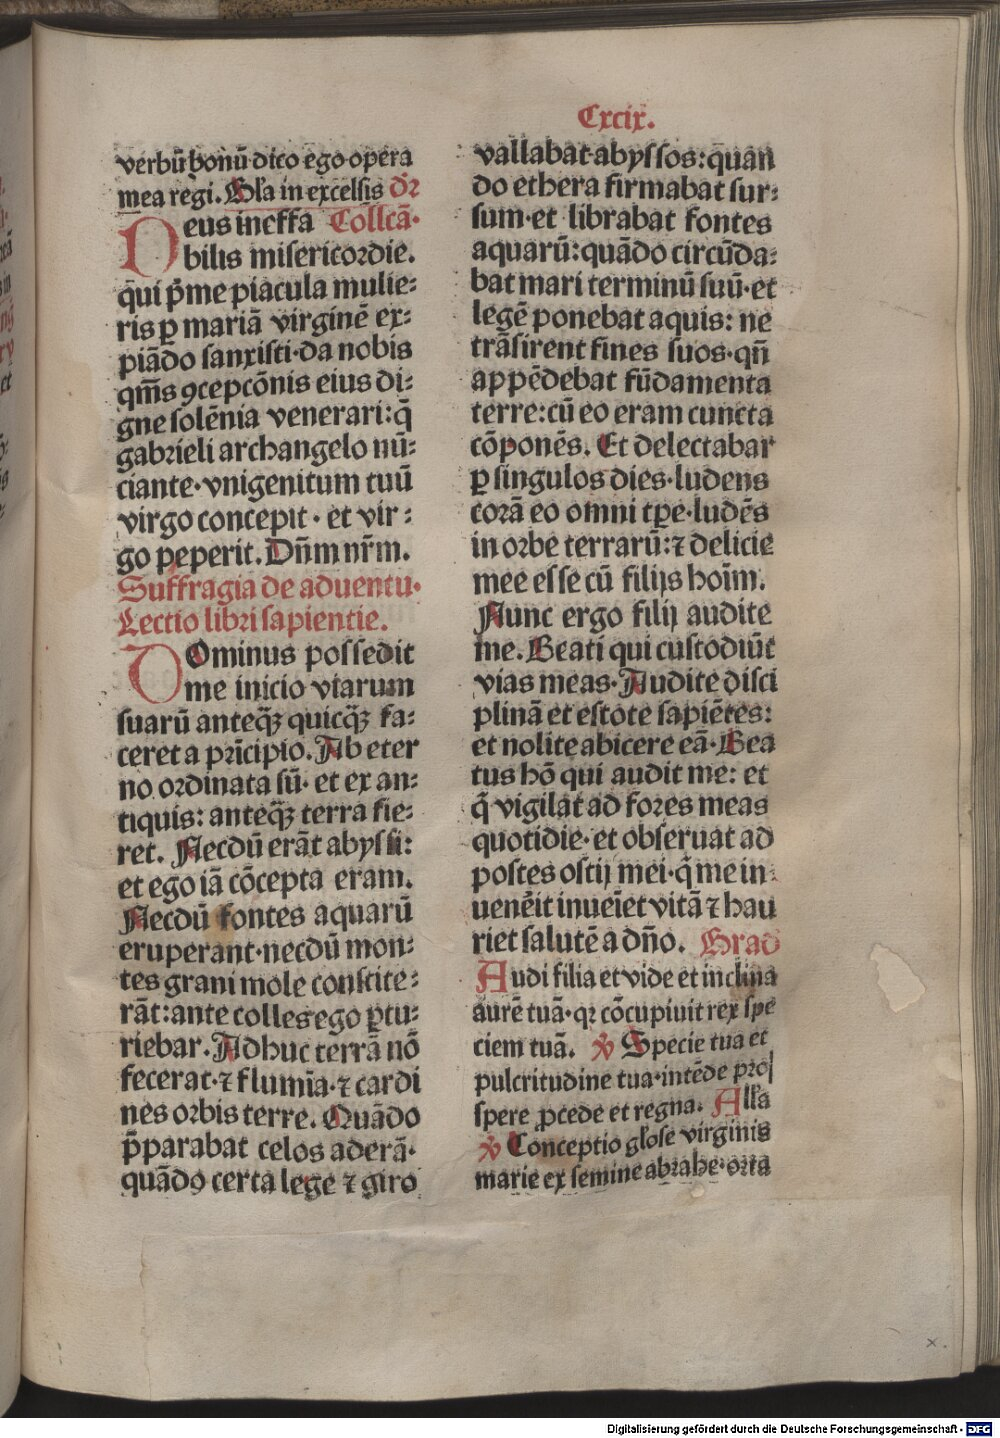 Cxcix.
verbū bonū dico ego opera
mea regi. Gl'a in excelsis dr̄
Deus ineffa Collcā.
bilis misericordie.
qui p̄me piacula mulie-
ris ꝑ mariā virginē ex-
piādo sanxisti·da nobis
qm̄s ꝯcepcōnis eius di-
gne solēnia venerari:q̄
gabrieli archangelo nū-
ciante·vnigenitum tuū
virgo concepit· et vir-
go peperit. Dn̄m nr̄m.
Suffragia de aduentu·
Lectio libri sapientie.
DOminus possedit
me inicio viarum
suarū anteqꝫ quicqꝫ fa-
ceret a prīcipio. Ab eter
no ordinata sū· et ex an-
tiquis: anteqꝫ terra fie-
ret. Necdū erāt abyssi:
et ego iā cōcepta eram.
Necdū fontes aquarū
eruperant·necdū mon-
tes graui mole constite-
rāt:ante colles ego ꝑtu-
riebar. Adhuc terrā nō
fecerat·⁊ flumīa·⁊ cardi
nes orbis terre. Quādo
p̄parabat celos aderā·
quādo certa lege ⁊ giro
vallabat abyssos:quan
do ethera firmabat sur-
sum·et librabat fontes
aquarū:quādo circūda-
bat mari terminū suū·et
legē ponebat aquis: ne
trāsirent fines suos·qn̄
appēdebat fūdamenta
terre:cū eo eram cuncta
cōponēs. Et delectabar
ꝑ singulos dies·ludens
corā eo omni tꝑe·ludēs
in orbe terrarū:⁊ delicie
mee esse cū filijs hoīm.
Nunc ergo filij audite
me. Beati qui custodiūt
vias meas·Audite disci
plinā et estote sapiētes:
et nolite abicere eā·Bea
tus hō qui audit me: et
q̄ vigilat ad fores meas
quotidie·et obseruat ad
postes ostij mei·q̄ me in-
uenēit inueīet vitā ⁊ hau
riet salutē a dn̄o. Grad
Audi filia et vide et inclina
aurē tuā·qꝛ cōcupiuit rex spe
ciem tuā. ℣ Specie tua et
pulcritudine tua·intēde pros
spere ꝓcede et regna. All'a
℣ Conceptio gl'ose virginis
marie ex semine abrahe·orta
x.
Digitalisierung gefördert durch die Deutsche Forschungsgemeinschaft - DFG